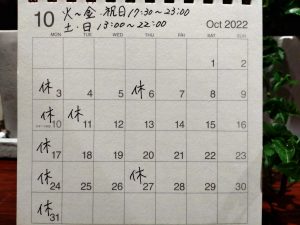 10 火～金・祝日17:30～23:00
土・日 13:00～22:00 Oct 2022
MON TUE WED THU FRI SAT SUN
1 2
休3 4 5 休6 7 8 9
休10 休11 12 13 14 15 16
休17 18 19 20 21 22 23
休24 25 26 休27 28 29 30
休31